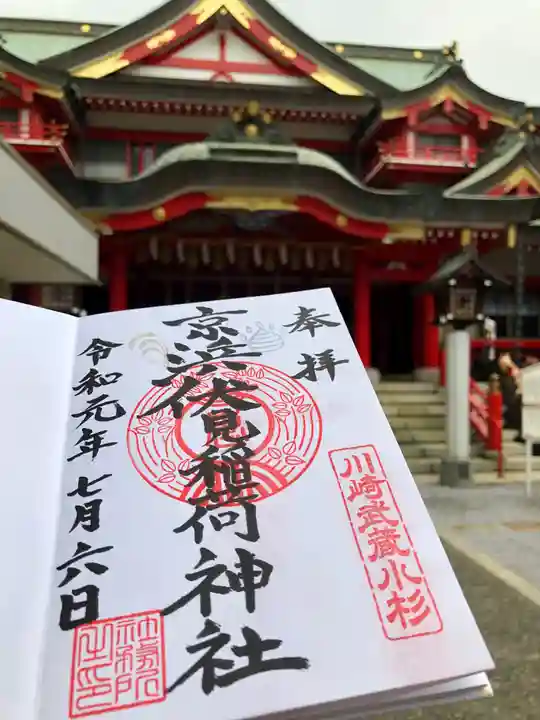 奉拝
川崎武蔵小杉
京浜伏見稲荷神社
令和元年七月六日
社務所之印